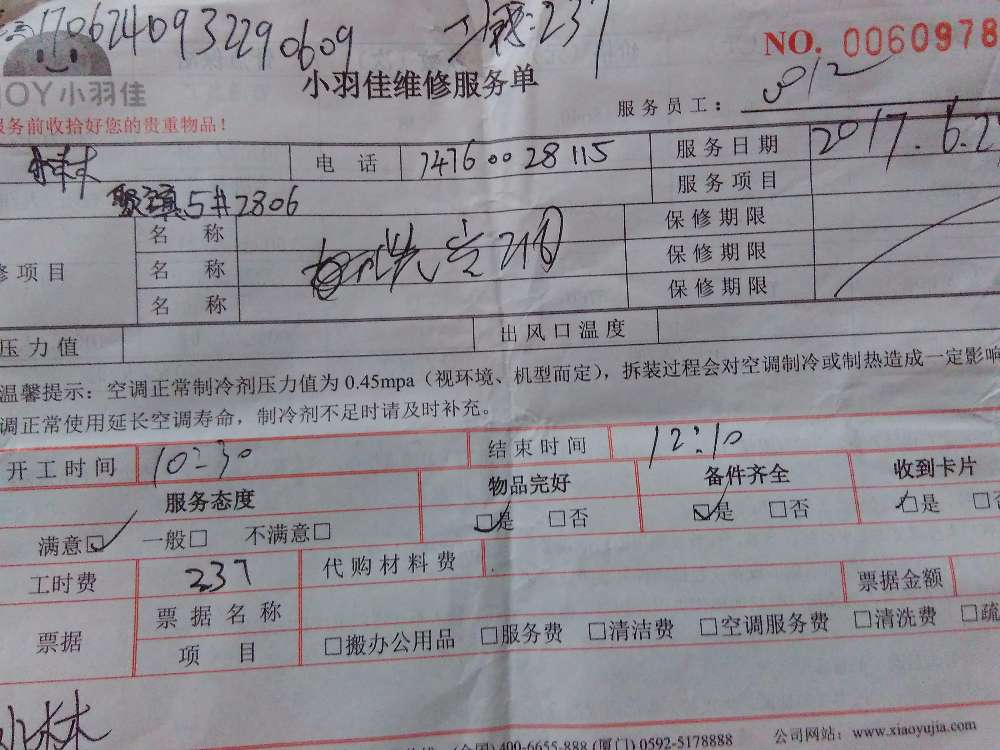 170624093229 0609 工感:237
NO. 0060978
JOY小羽佳
小羽佳维修服务单
服务员工: 012
服务前收拾好您的贵重物品!
电 话 7476 00 28 115 服务日期 2017.6.2
5#2806 服务项目
名 称 保修期限
修项目 名 称 清洗空调 保修期限
名 称 保修期限
压力值 出风口温度
温馨提示:空调正常制冷剂压力值为 0.45mpa(视环境、机型而定),拆装过程会对空调制冷或制热造成一定影响
调正常使用延长空调寿命,制冷剂不足时请及时补充。
开工时间 10:30 结束时间 12:10
服务态度 物品完好 备件齐全 收到卡片
满意☑ 一般□ 不满意□ ☑是 □否 ☑是 □否 ☑是 □否
工时费 237 代购材料费
票据 票据名称 票据金额
项 目 □搬办公用品 □服务费 □清洁费 □空调服务费 □清洗费 □疏
小林
(全国) 400-6655-888 (厦门) 0592-5178888 公司网站: www.xiaoyujia.com